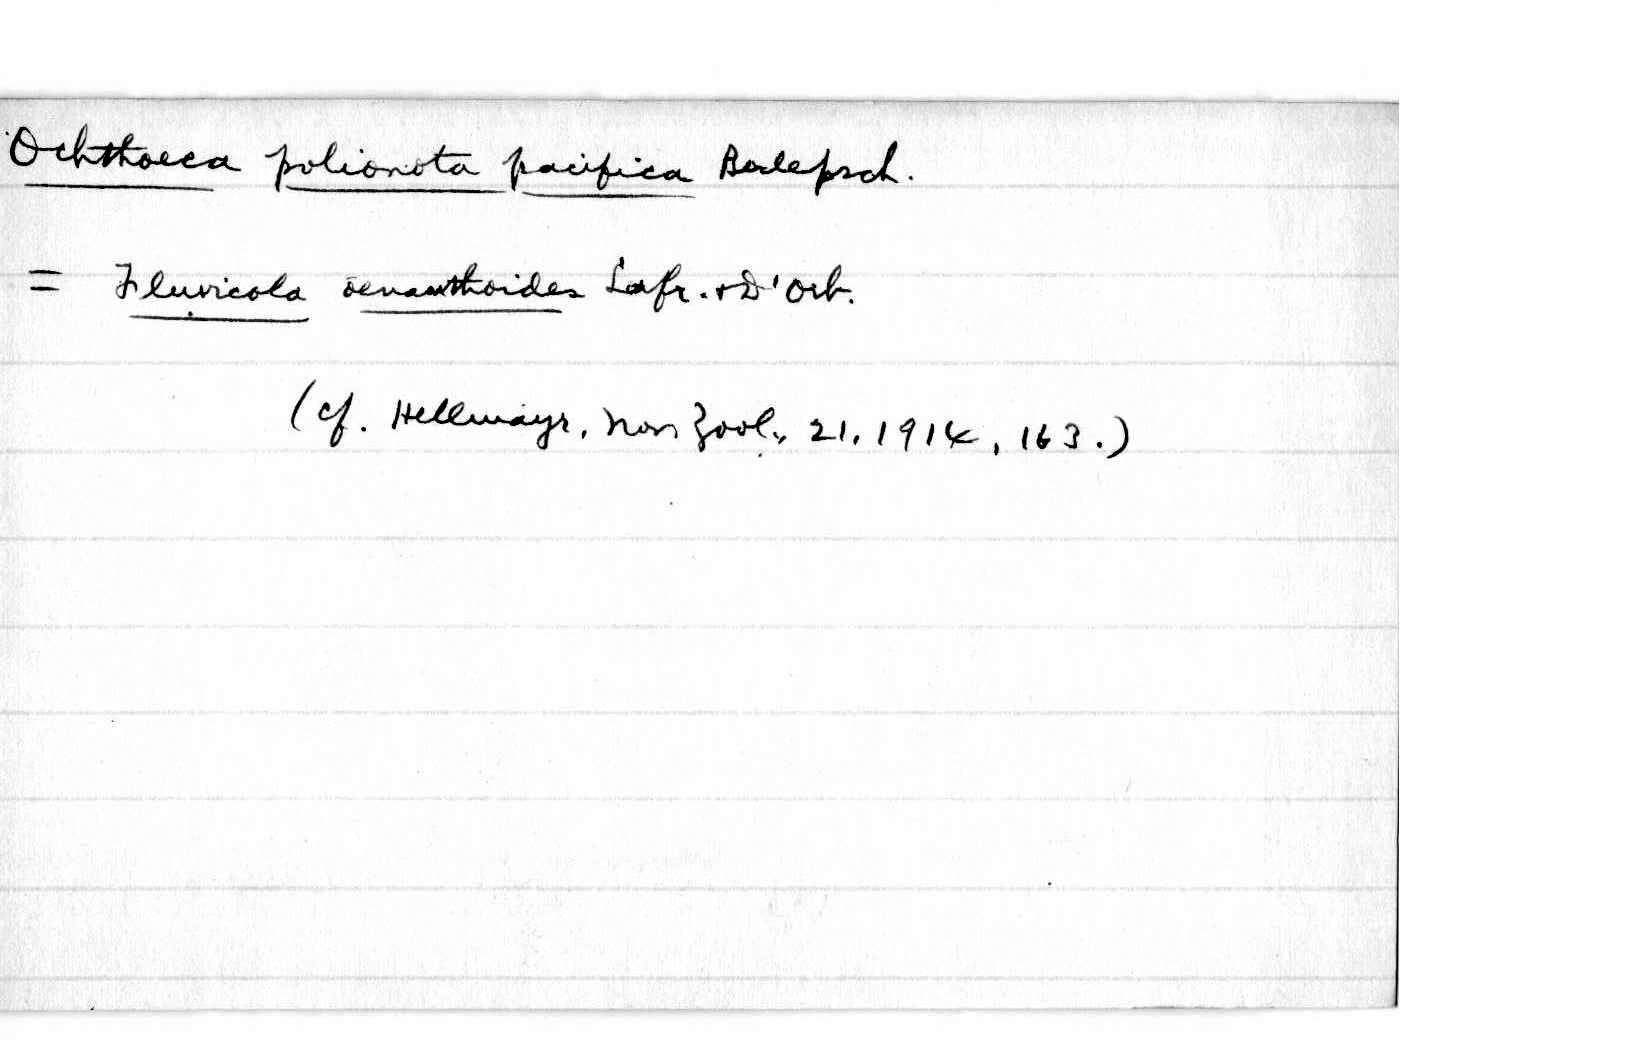 Ochthoeca polionota pacifica Berlepsch.
= Fluvicola oenanthoides Lafr. + D'Orb.
(cf. Hellmayr, Nov Zool., 21, 1914, 163.)